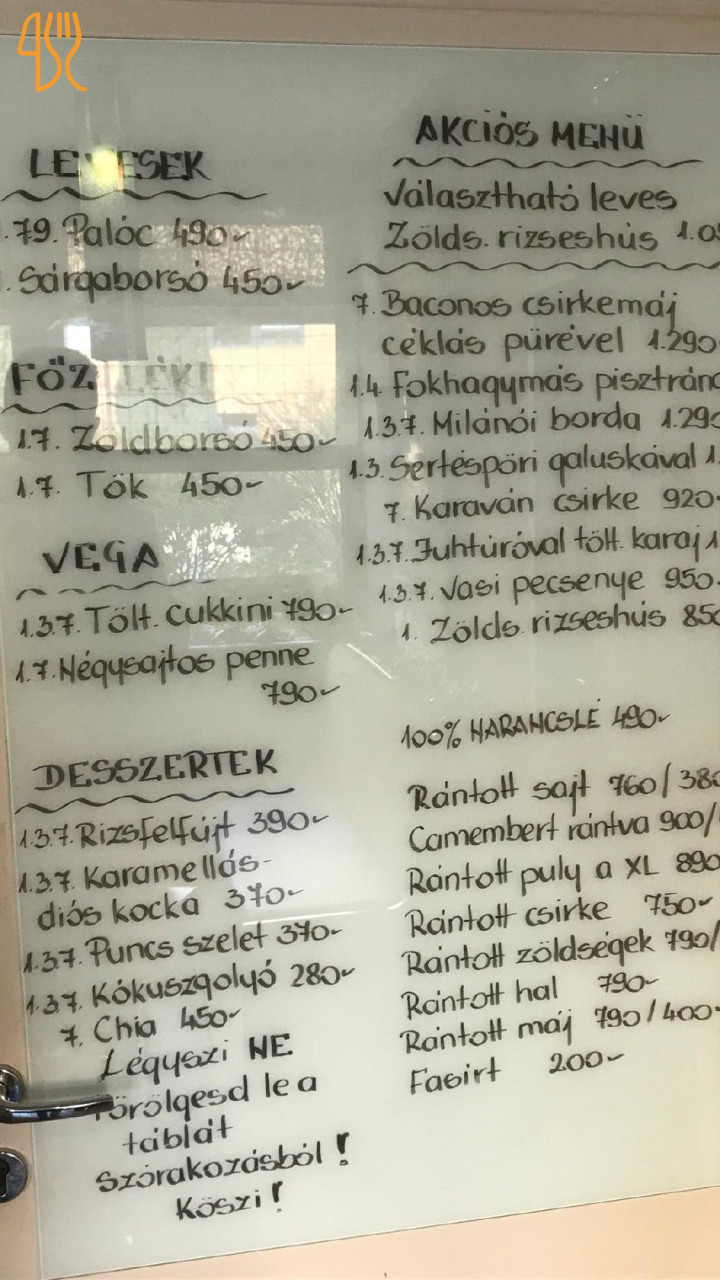 LEVESEK
79. Palóc 490
Sárgaborsó 450
FŐZELÉK
1.7. Zöldborsó 450
1.7. Tök 450
VEGA
1.3.7. Tölt. cukkini 790
1.7. Négysajtos penne
790
DESSZERTEK
1.3.7. Rizsfelfújt 390
1.3.7. Karamellás-
diós kocka 370
1.3.7. Puncs szelet 370
1.3.7. Kókuszgolyó 280
7. Chia 450
Légyszi NE
törölgesd le a
táblát
szórakozásból!
Köszi!
AKCIÓS MENÜ
Választható leves
Zölds. rizseshús
7. Baconos csirkemáj
céklás pürével 1.290
1.4 Fokhagymás
1.3.7. Milánói borda 1.290
1.3. Sertéspöri galuskával
7. Karaván csirke 920
1.3.7. Juhtúróval tölt. karaj
1.3.7. Vasi pecsenye 950
1. Zölds. rizseshús 850
100% NARANCSLÉ 490
Rántott sajt 760/380
Camembert rántva 900/
Rántott puly a XL 890
Rántott csirke 750
Rántott zöldségek 790/
Rántott hal 790
Rántott máj 790/400
Fasirt 200